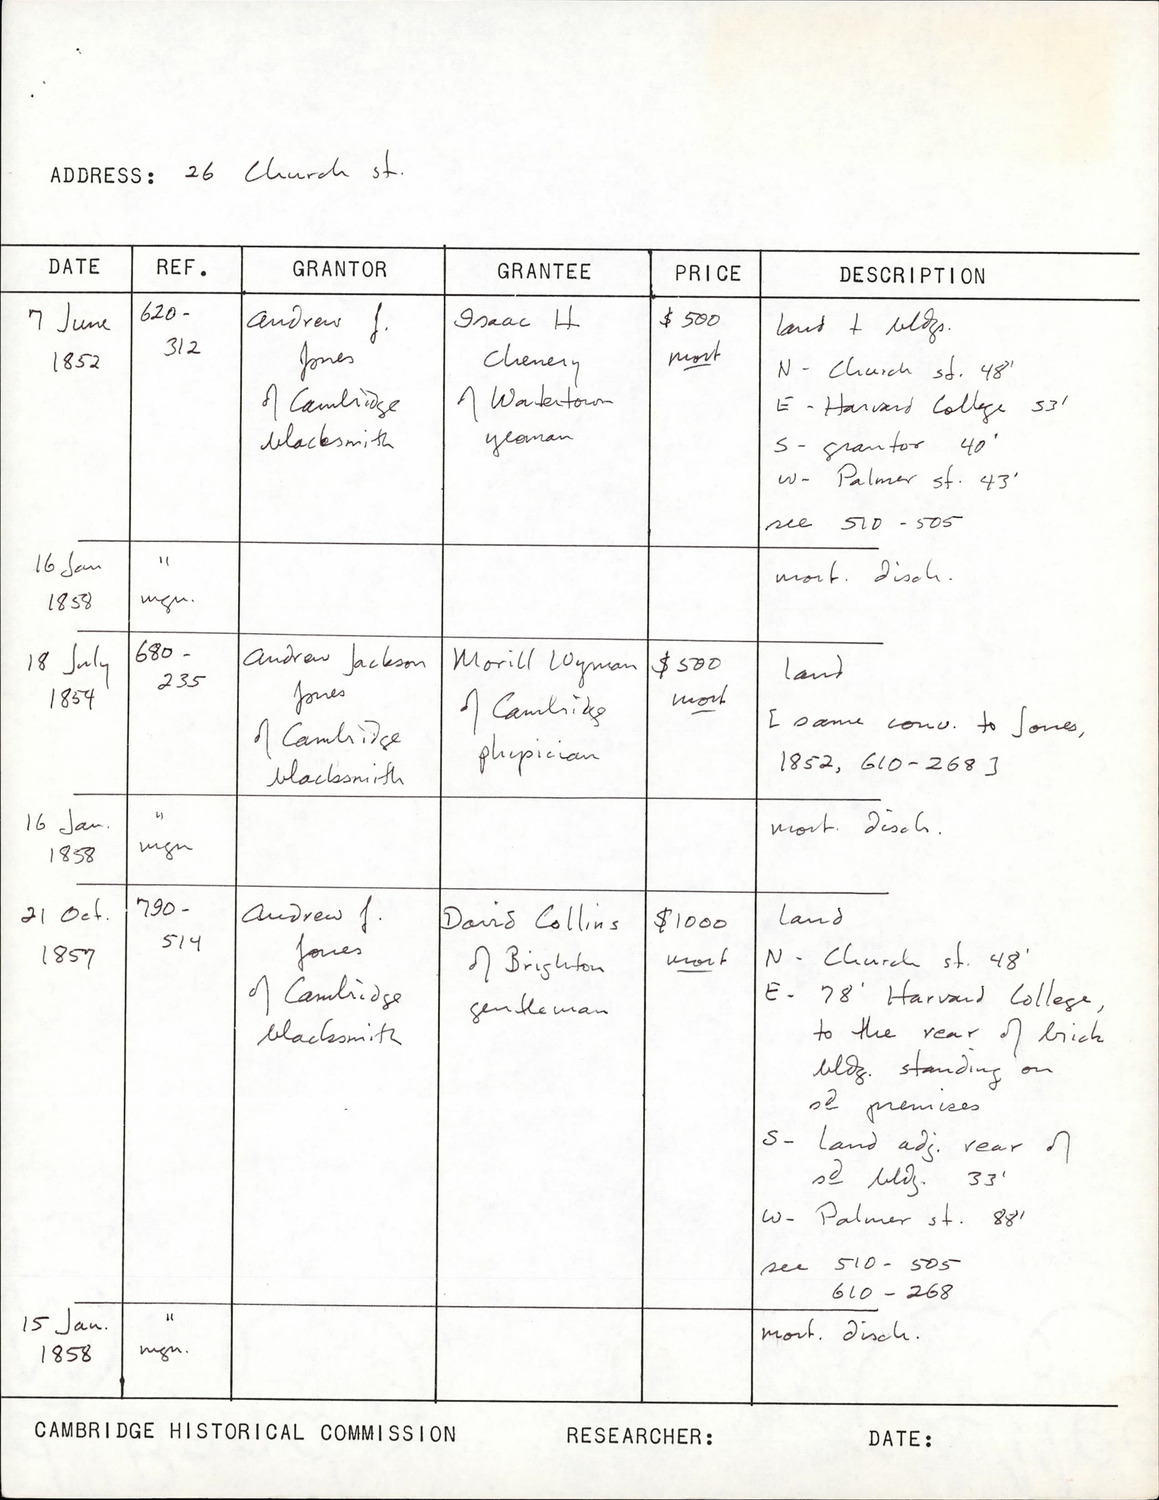 ADDRESS: 26 Church st.
DATE REF. GRANTOR GRANTEE PRICE DESCRIPTION
7 June 1852
620-312
Andrew J.
Jones
of Cambridge
blacksmith
Isaac H
Chenery
of Watertown
yeoman
$500
mort
land + bldgs.
N - Church st. 48'
E - Harvard College 53'
S - grantor 40'
W - Palmer st. 43'
see 510 - 505
16 Jan
1858
"
mgn.
mort. disch.
18 July
1854
680 -
235
Andrew Jackson
Jones
of Cambridge
blacksmith
Morill Wyman
of Cambridge
physician
$500
mort
land
[ same conv. to Jones,
1852, 610-268 ]
16 Jan.
1858
"
mgn
mort. disch.
21 Oct.
1857
790-
514
Andrew J.
Jones
of Cambridge
blacksmith
David Collins
of Brighton
gentleman
$1000
mort
land
N - Church st. 48'
E - 78' Harvard College,
to the rear of brick
bldg. standing on
sd premises
S - land adj. rear of
sd bldg. 33'
W - Palmer st. 88'
see 510 - 505
610 - 268
15 Jan.
1858
"
mgn.
mort. disch.
CAMBRIDGE HISTORICAL COMMISSION RESEARCHER: DATE: